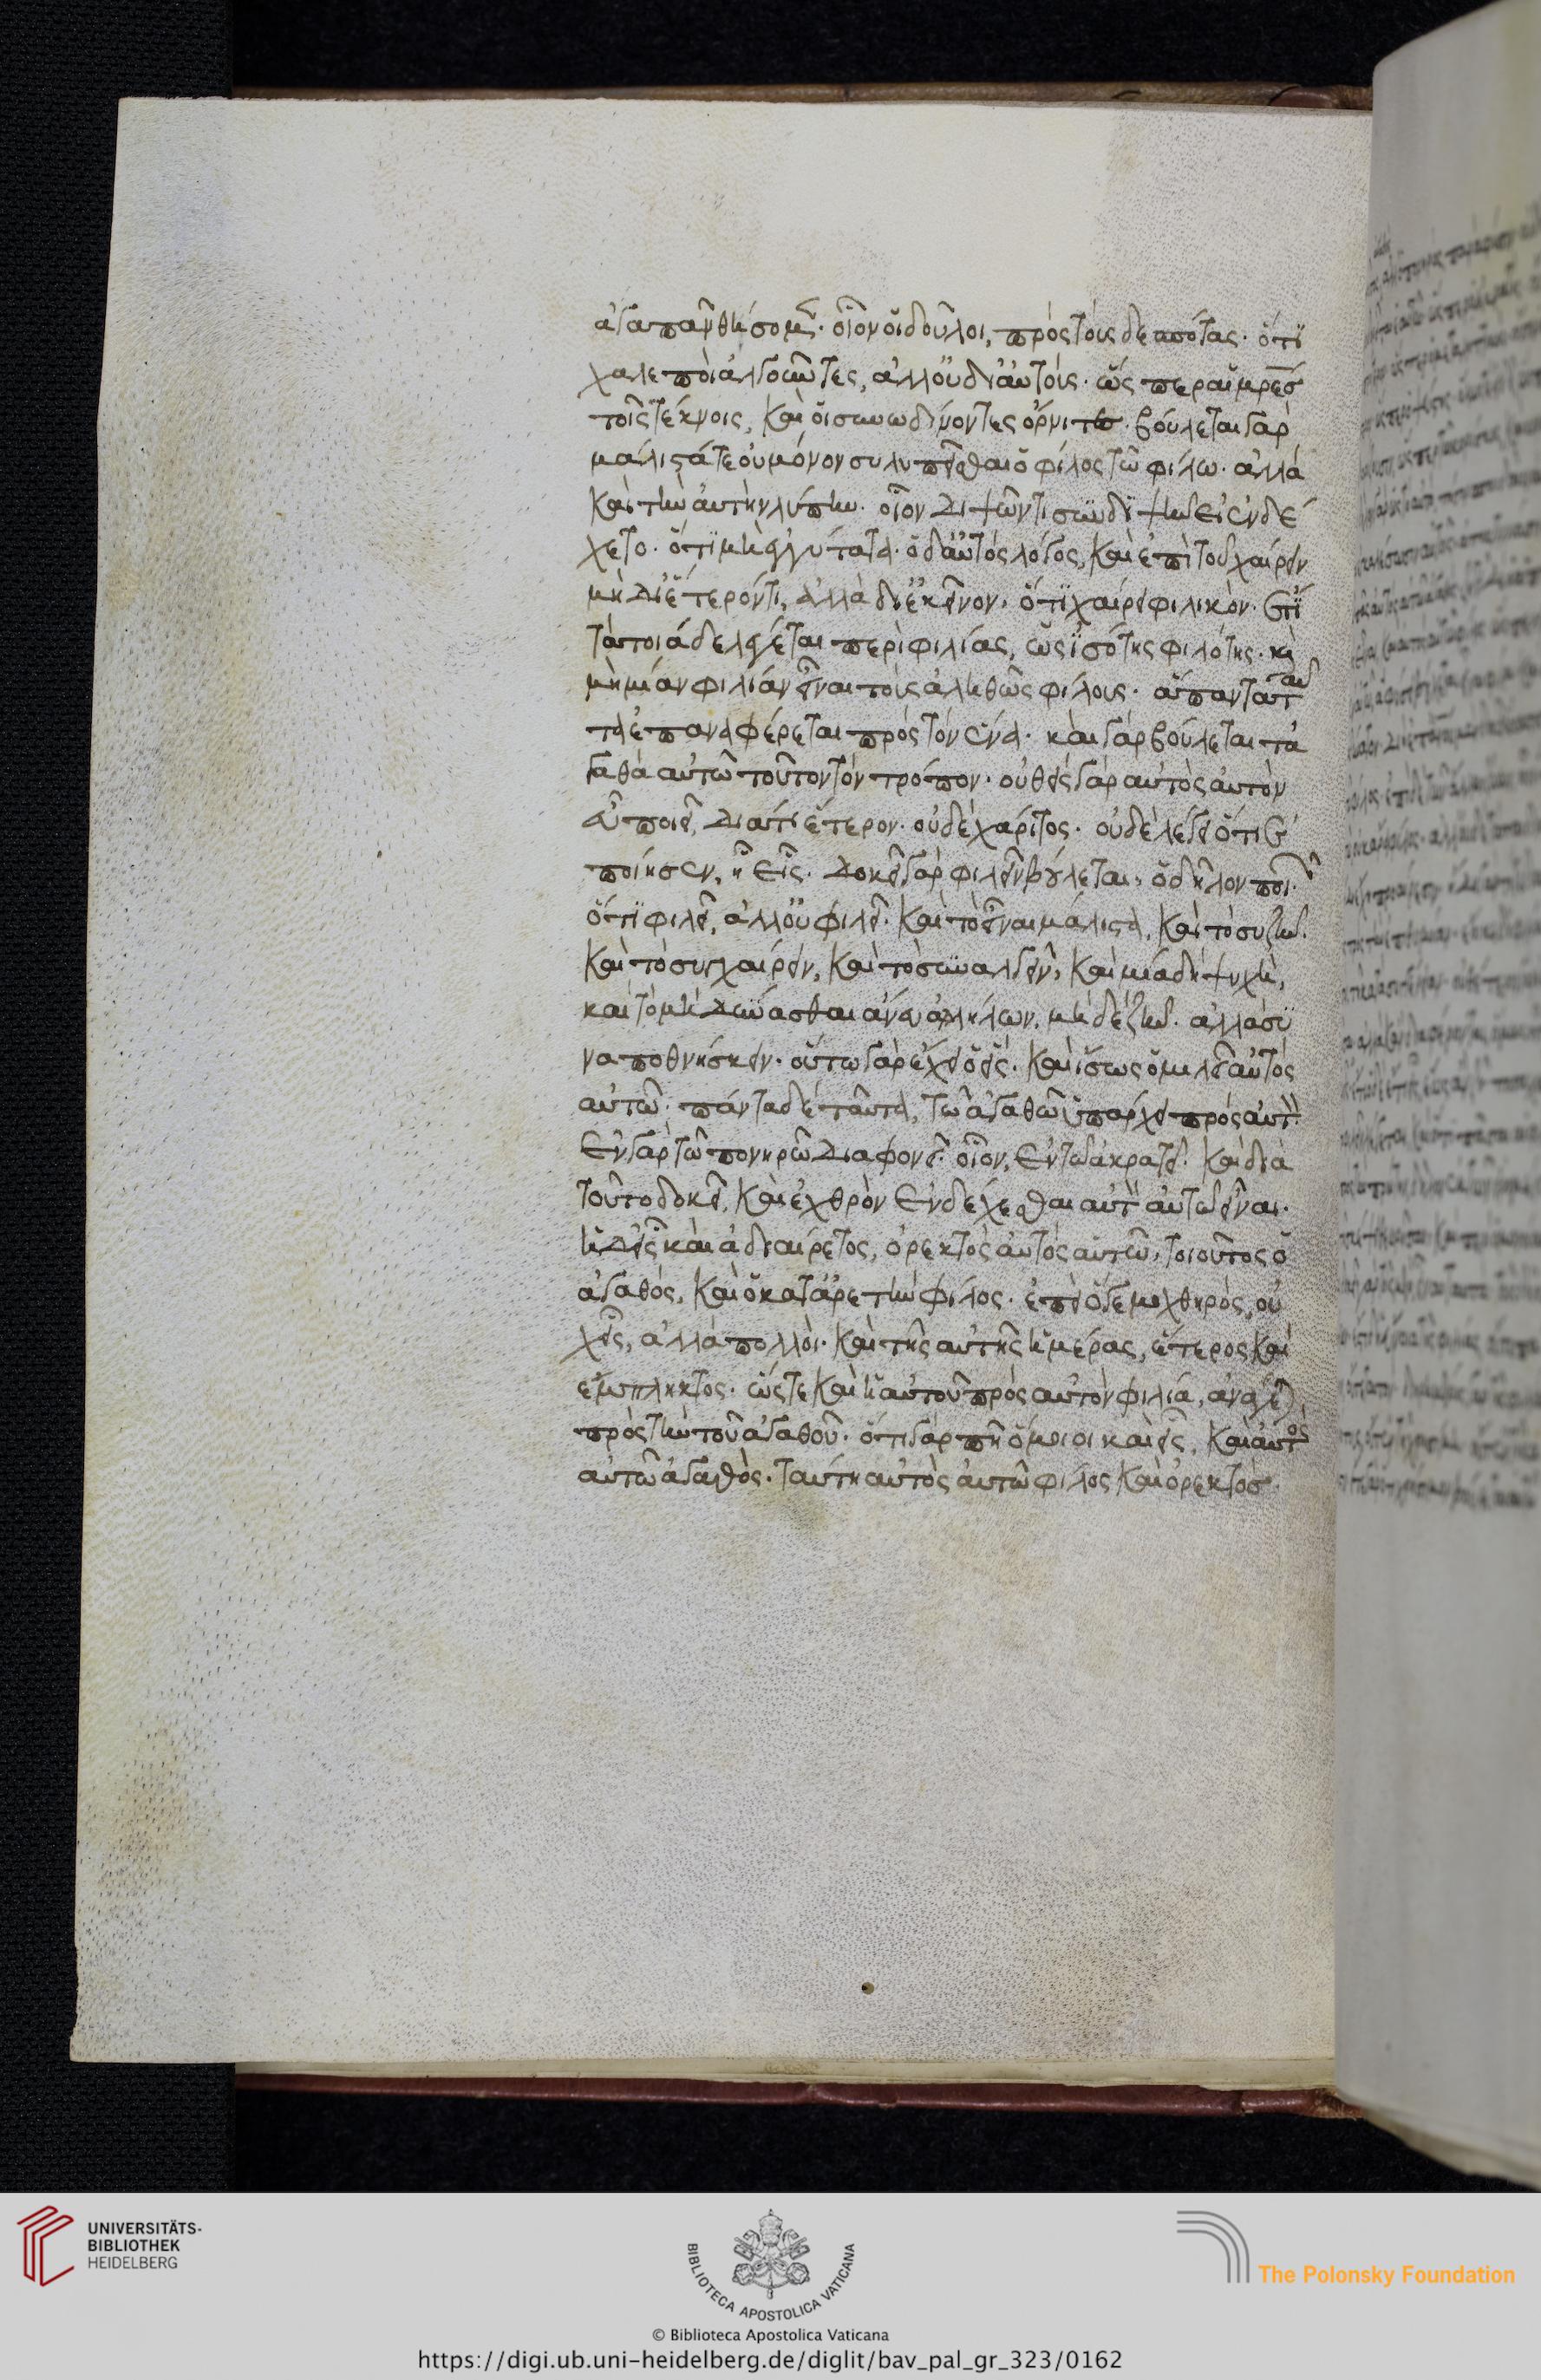 ἀγαπᾶν θήσομεν· οἷον οἱ δοῦλοι, πρὸς τοὺς δεσπότας· ὅτι
χαλεποὶ ἀλγοῦντες, ἀλλ' οὐ δι' αὐτοὺς· ὥσπερ αἱ μρες
τοῖς τέκνοις, καὶ οἱ συνωδίνοντες ὄρνιθες· βούλεται γὰρ
μάλιστά τε οὐ μόνον συλυπεῖσθαι ὁ φίλος τῷ φίλω· ἀλλὰ
καὶ τὴν αὐτὴν λύπην· οἷον διψῶντι συνδιψῆν εἰ ἐνδέ
χετο· ὅτι μὴ ἐγγύτατα· ὁ δ' αὐτὸς λόγος, καὶ ἐπὶ τοῦ χαίρειν
μὴ δι' ἕτερόν τι, ἀλλὰ δι' ἐκεῖνον· ὅτι χαίρει φιλικὸν· ἔτι
τὰ τοιάδε λέγεται περὶ φιλίας, ὡς ἰσότης φιλότης· καὶ
μὴ μίαν φιλίαν εἶναι τοὺς ἀληθῶς φίλους· ἅπαντα ταῦ
τα ἐπαναφέρεται πρὸς τὸν ἕνα· καὶ γὰρ βούλεται τἀ
γαθὰ αὐτῶ τοῦτον τὸν τρόπον· οὐθεὶς γὰρ αὐτὸς αὑτὸν
εὖ ποιεῖ, διά τι ἕτερον· οὐδὲ χάριτος· οὐδὲ λέγει ὅτι ἐ
ποίησεν, ἧ εἷς· δοκεῖ γὰρ φιλεῖν βούλεται, ὁ δῆλον ποι·
ὅτι φιλεῖ, ἀλλ' οὐ φιλεῖ· καὶ τὸ εἶναι μάλιστα, καὶ τὸ συζῆν·
καὶ τὸ συγχαίρειν, καὶ τὸ συναλγεῖν, καὶ μία δὴ ψυχὴ,
καὶ τὸ μὴ δύνασθαι ἄνευ ἀλλήλων, μηδὲ ζῆν· ἀλλὰ συ
ναποθνήσκειν· οὕτω γὰρ ἔχει ὁ εἷς· καὶ ἴσως ὁμιλεῖ αὐτὸς
αὑτῶ· πάντα δὲ ταῦτα, τῶ ἀγαθῶ ὑπάρχει πρὸς αὑτὸν·
ἐν γὰρ τῶ πονηρῶ διαφωνεῖ· οἷον, ἐν τῶ ἀκρατεῖ· καὶ διὰ
τοῦτο δοκεῖ, καὶ ἐχθρὸν ἐνδέχεσθαι αὐτὸν αὑτῶ εἶναι·
ἧ δ' εἷς καὶ ἀδιαίρετος, ὀρεκτὸς αὐτὸς αὑτῶ, τοιοῦτος ὁ
ἀγαθὸς, καὶ ὁ κατ' ἀρετὴν φίλος· ἐπεὶ ὅγε μοχθηρὸς, οὐ
χ εἷς, ἀλλὰ πολλοὶ· καὶ τῆς αὐτῆς ἡμέρας, ἕτερος καὶ
ἔμπληκτος· ὥστε καὶ ἡ αὑτοῦ πρὸς αὑτὸν φιλία, ἀνάγεται
πρὸς τὴν τοῦ ἀγαθοῦ· ὅτι γὰρ πῆ ὅμοιοι καὶ εἷς, καὶ αὐτὸς
αὑτῶ ἀγαθὸς· ταύτη αὐτὸς αὑτῶ φίλος καὶ ὀρεκτὸς·
UNIVERSITÄTS-
BIBLIOTHEK
HEIDELBERG
BIBLIOTECA APOSTOLICA VATICANA
The Polonsky Foundation
© Biblioteca Apostolica Vaticana
https://digi.ub.uni-heidelberg.de/diglit/bav_pal_gr_323/0162